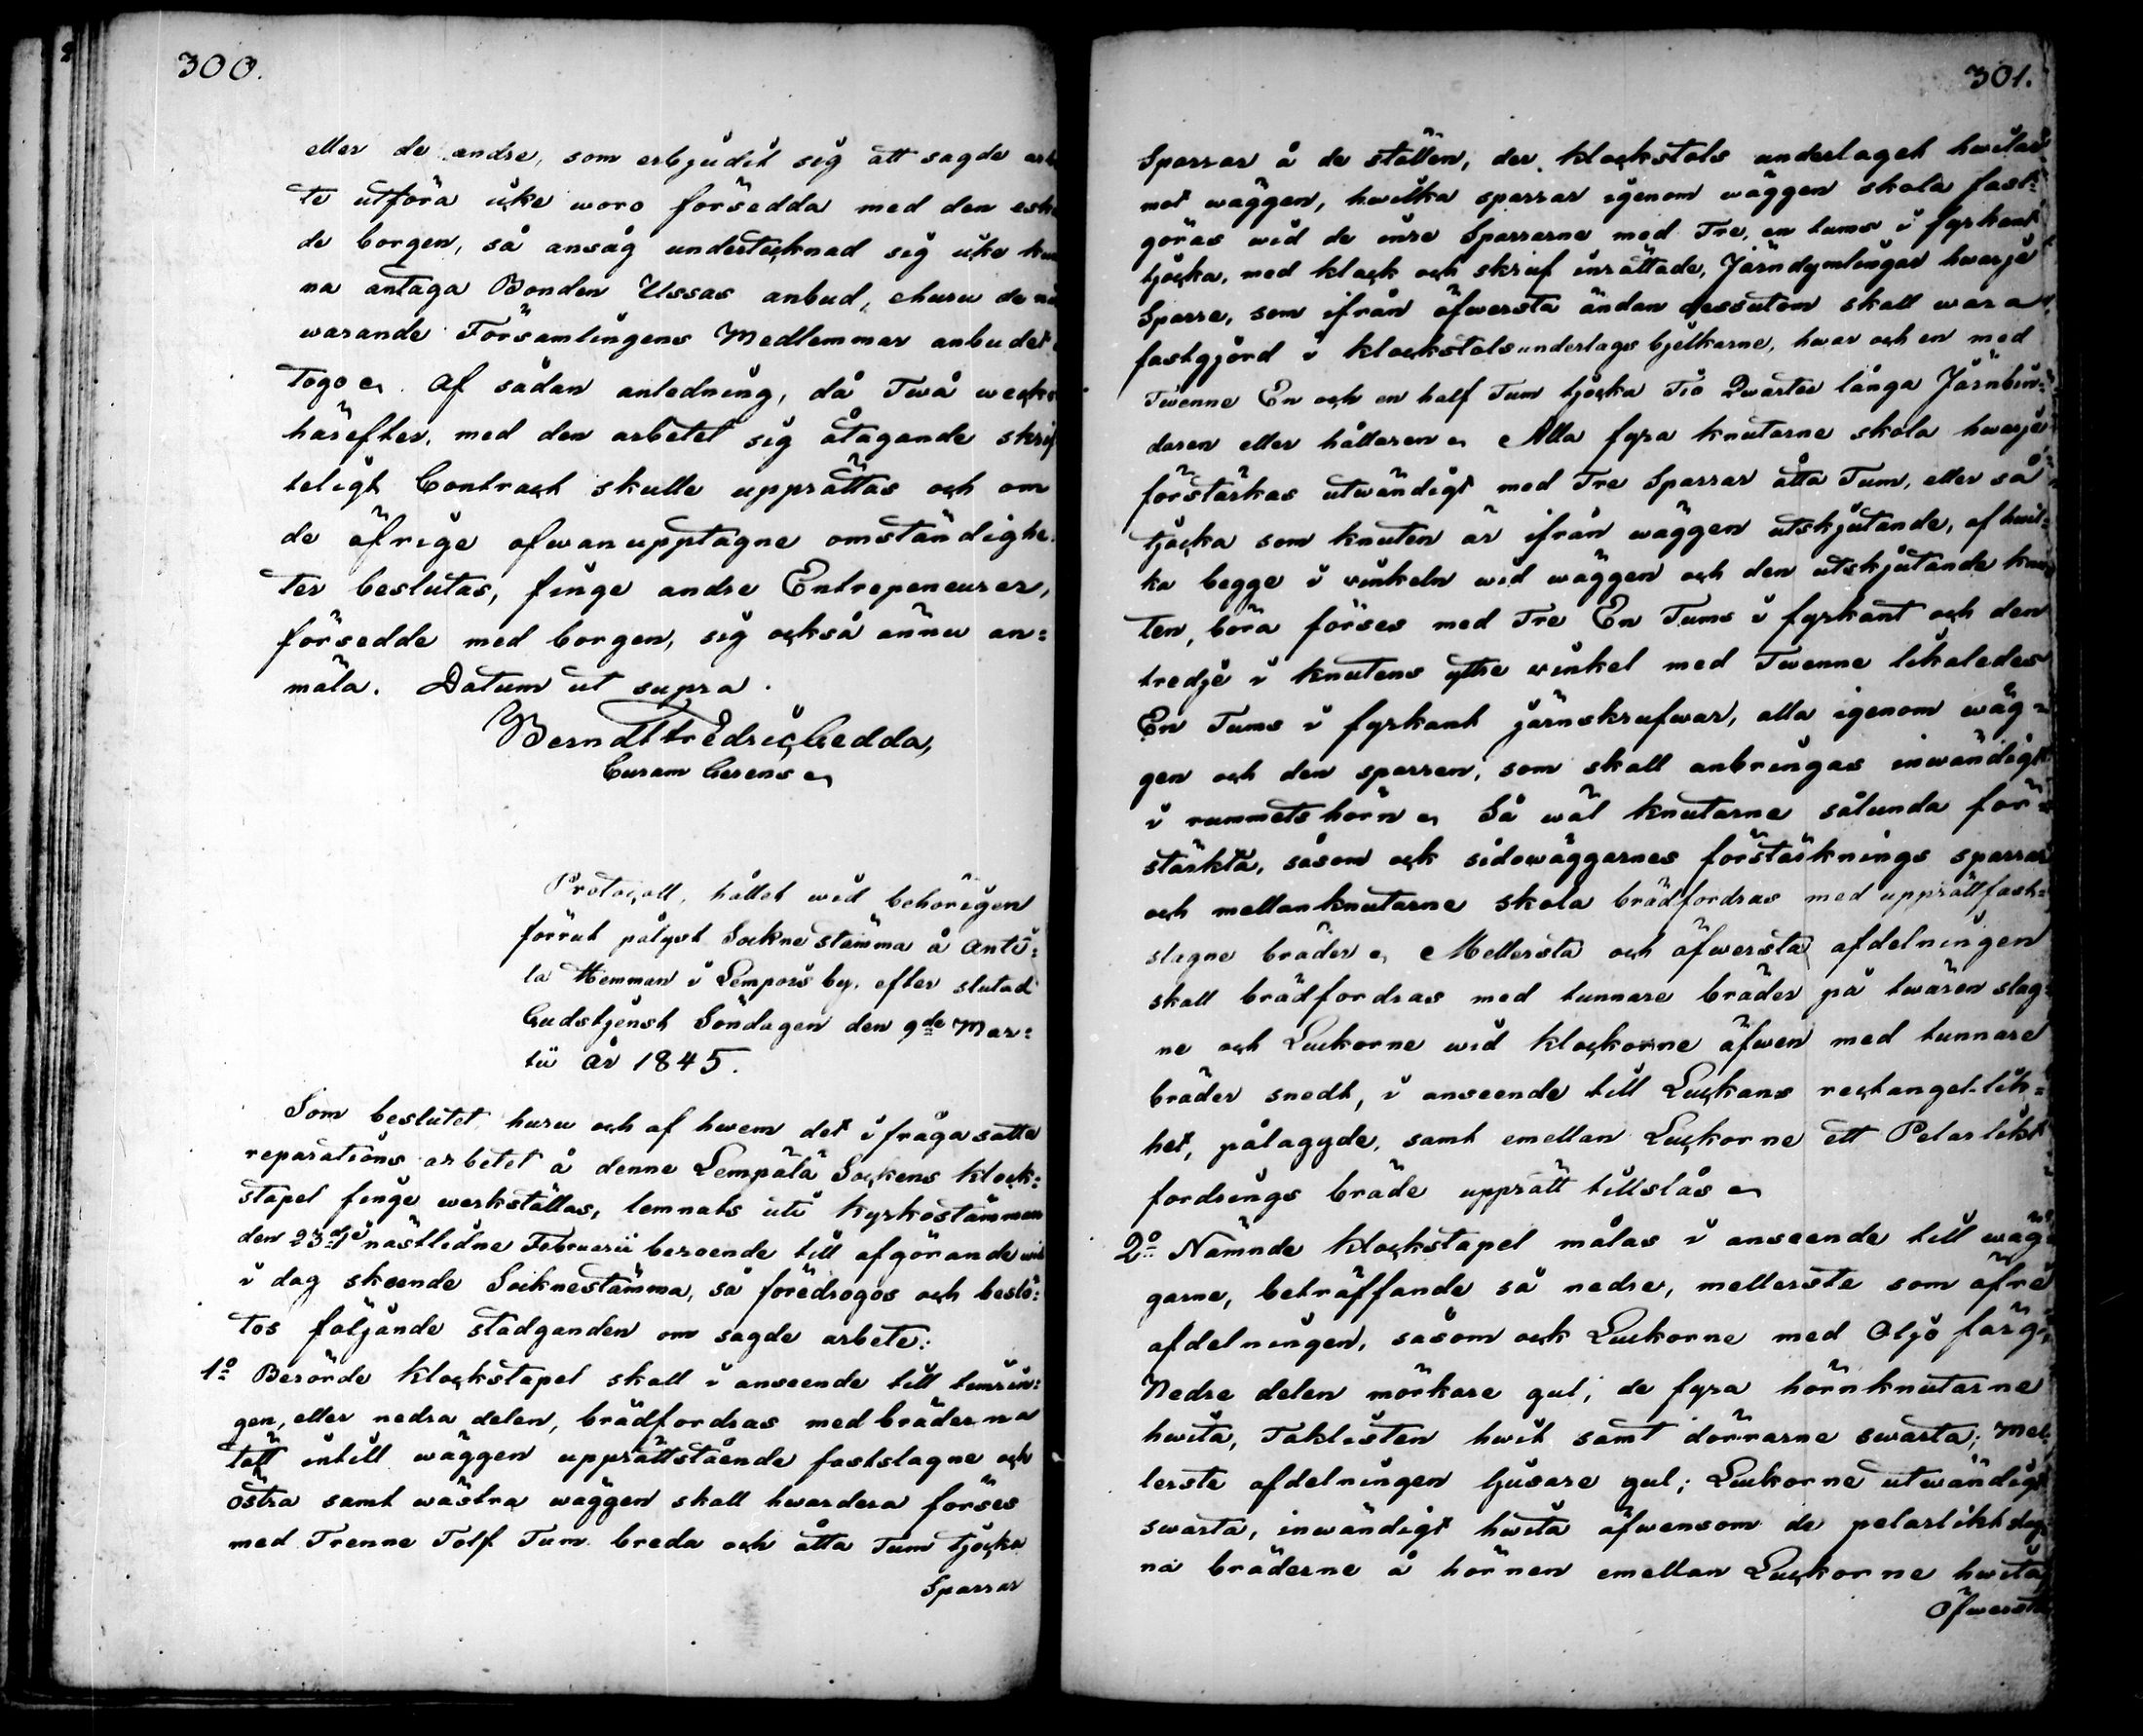 300.
eller de andre, som erbjudit sig att sagde arbe
te utföra icke woro försedda med den eska
de borgen, så ansåg undertecknad sig icke kun
na antaga Bonden Ussas anbud, ehuru de nä
warande Församlingens Medlemmar anbudet
togo. Af sådan anledning, då Twå weckor
härefter, med den arbetet sig åtagande skrif
teligt Contract skulle upprättas och om
de öfrige ofwanupptagne omständighe
ter beslutas, finge andre Entrepeneurer,
försedde med borgen, sig också ännu an=
mäla. Datum ut supra.
Berndt Fredric Gedda,
Curam Gerens
Protocoll, hållet wid behörigen
förrut pålyst Socknestämma å Anti=
la Hemman i Lempois by, efter slutad
Gudstjenst Söndagen den 9de Mar=
tii År 1845.
Som beslutet, huru och af hwem det i fråga satte
reparations arbetet å denne Lempälä Sockens klock=
stapel finge werkställas, lemnats uti kyrkostämman
den 23dje nästledne Februarii beroende till afgörande wid
i dag skeende Socknestämma, så föredrogos och beslö=
tos följande stadganden om sagde arbete:
1o Berörde klockstapel skall i anseende till timrin=
gen, eller nedra delen, brädfordras med bräderna
tätt intill wäggen upprättstående fastslagne och
östra samt wästra wäggen skall hwardera förses
med Trenne Tolf Tum breda och åtta Tum tjocka
Sparrar
301.
Sparrar å de ställen, der klockstols underlaget hwilar
mot wäggen, hwilka sparrar igenom wäggen skola fast=
göras wid de inre Sparrarne med Tre, en tums i fyrkant
tjocka, med klack och skruf inrättade, Järndymlingar hwarje
Sparre, som ifrån öfwersta ändan dessutom skall wara
fastgjord i klockstolsunderlags bjelkarne, hwar och en med
Twenne En och en half Tum tjocka Tio Qwarter långa Järnbin=
daren eller hållaren. Alla fyra knutarne skola hwarje
förstärkas utwändigt med Tre Sparrar åtta Tum, eller så
tjocka som knuten är ifrån wäggen utskjutande, af hwil=
ka begge i winkeln wid wäggen och den utskjutande knu
ten, böra förses med Tre En Tums i fyrkant och den
tredje i knutens yttre winkel med Twenne likaledes
En Tums i fyrkant järnskrufwar, alla igenom wäg=
gen och den sparren, som skall anbringas inwändigt
i rummets hörn. Så wäl knutarne sålunda för=
stärkta, såsom ock sidowäggarnes förstärknings sparrar
och mellanknutarne skola brädfordras med upprättfast=
slagne bräder. Mellersta och öfwersta afdelningen
skall brädfordras med tunnare bräder på twären slag=
ne och Luckorne wid klockorne äfwen med tunnare
bräder snedt, i anseende till Luckans rectangel-lik=
het, pålagde, samt emellan Luckorne ett Pelarlikt
fordrings bräde upprätt tillslås.
2o Nämnde klockstapel målas i anseende till wäg=
garne, beträffande så nedre, mellerste som öfre
afdelningen, såsom ock Luckorne med Oljo färg,
Nedre delen mörkare gul; de fyra hörnknutarne
hwita, Taklisten hwit samt dörrarne swarta; Mel=
lerste afdelningen ljusare gul; Luckorne utwändigt
swarta, inwändigt hwita äfwensom de pelarlikt slag=
na bräderne å hörnen emellan Luckorne hwita
Öfwersta